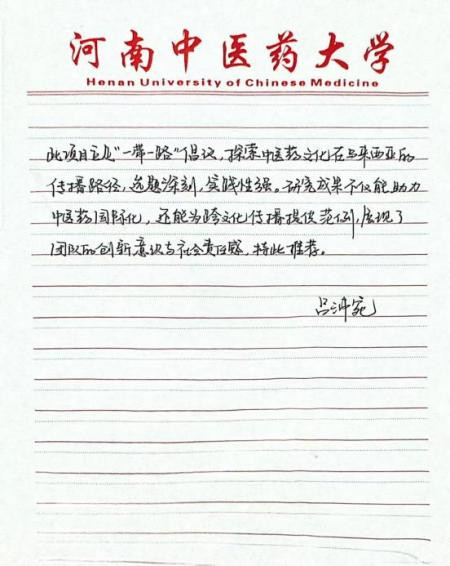 河南中医药大学
Henan University of Chinese Medicine
此项目立足“一带一路”倡议，探索中医药文化在马来西亚的
传播路径，选题深刻，实践性强。研究成果不仅能助力
中医药国际化，还能为跨文化传播提供范例，展现了
团队的创新意识与社会责任感，特此推荐。
吕沛宛